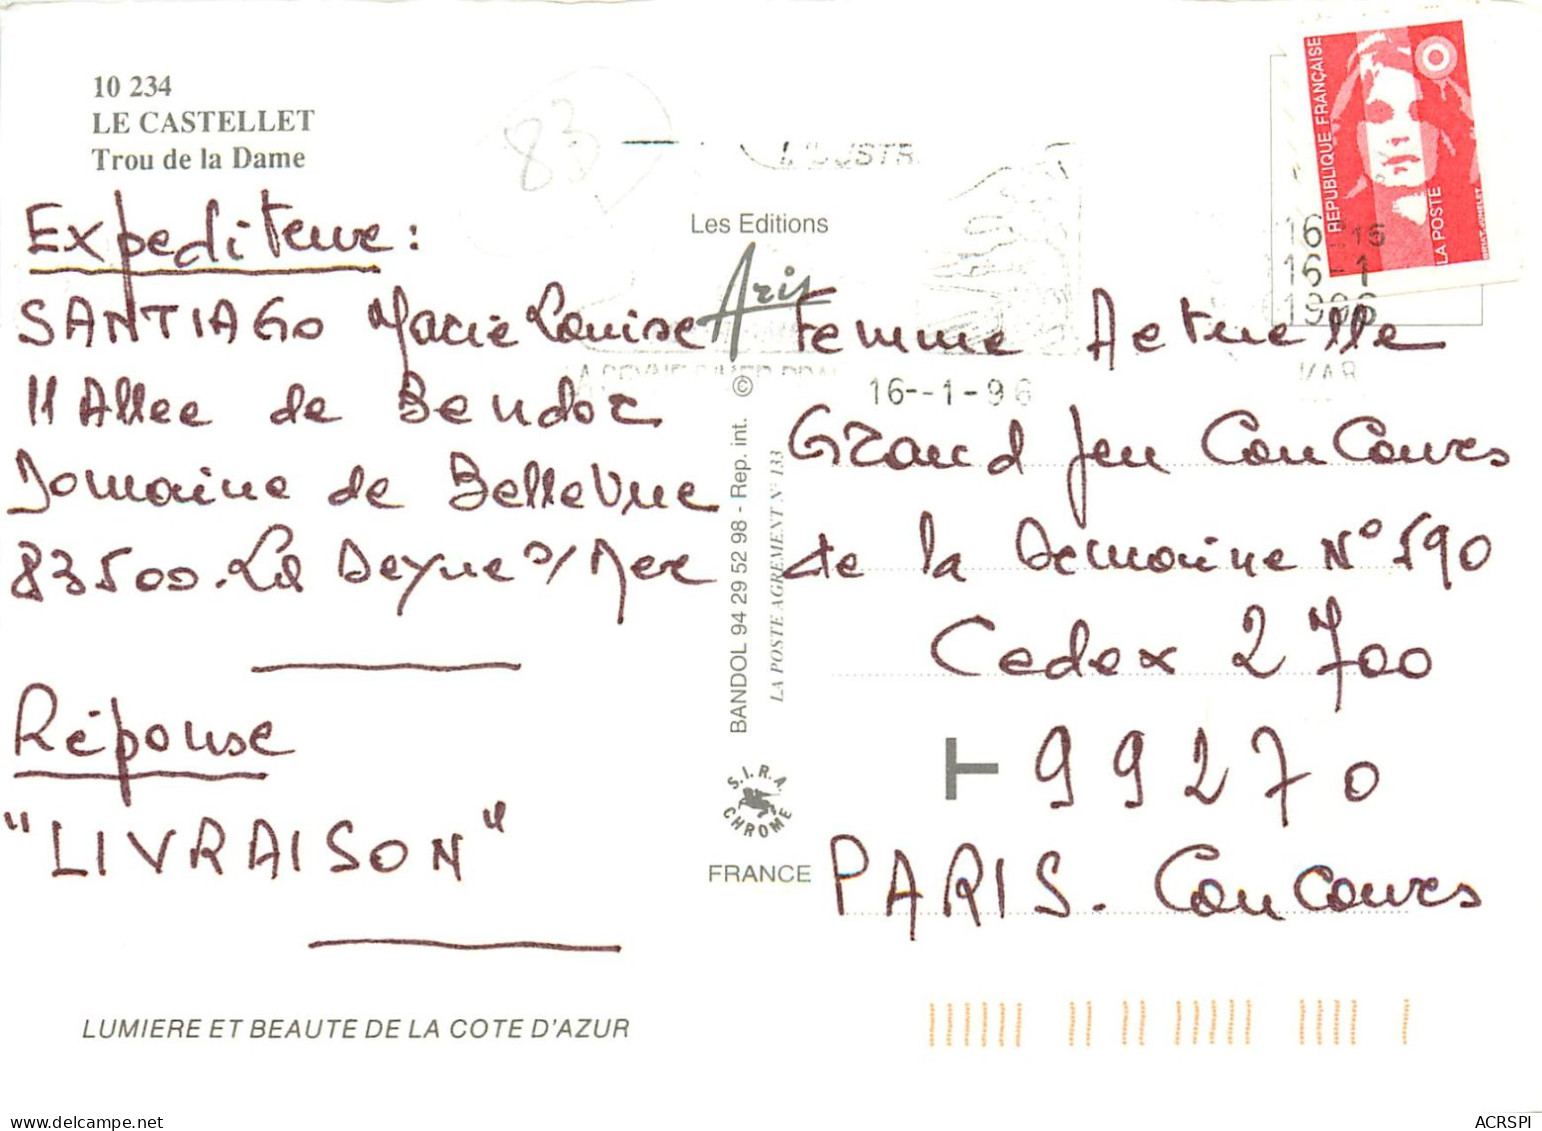 10 234
LE CASTELLET
Trou de la Dame
83
Expediteure :
SANTIAGO Marie Louise
11 Allee de Bendor
Domaine de BelleVue
83500. La Seyne s/Mer
Réponse
"LIVRAISON"
LUMIERE ET BEAUTE DE LA COTE D'AZUR
Les Editions
Aris
BANDOL 94 29 52 98 - Rep. int. ©
LA POSTE AGREMENT N° 133
S.I.R.A
CHROME
FRANCE
REPUBLIQUE FRANÇAISE
LA POSTE
BRIAT-JUMELET
16 15
16-1
1996
16--1-96
Femme Actuelle
Grand Jeu Concours
de la Semaine N° 590
Cedex 2700
T 99270
PARIS. Concours
ACRSPI